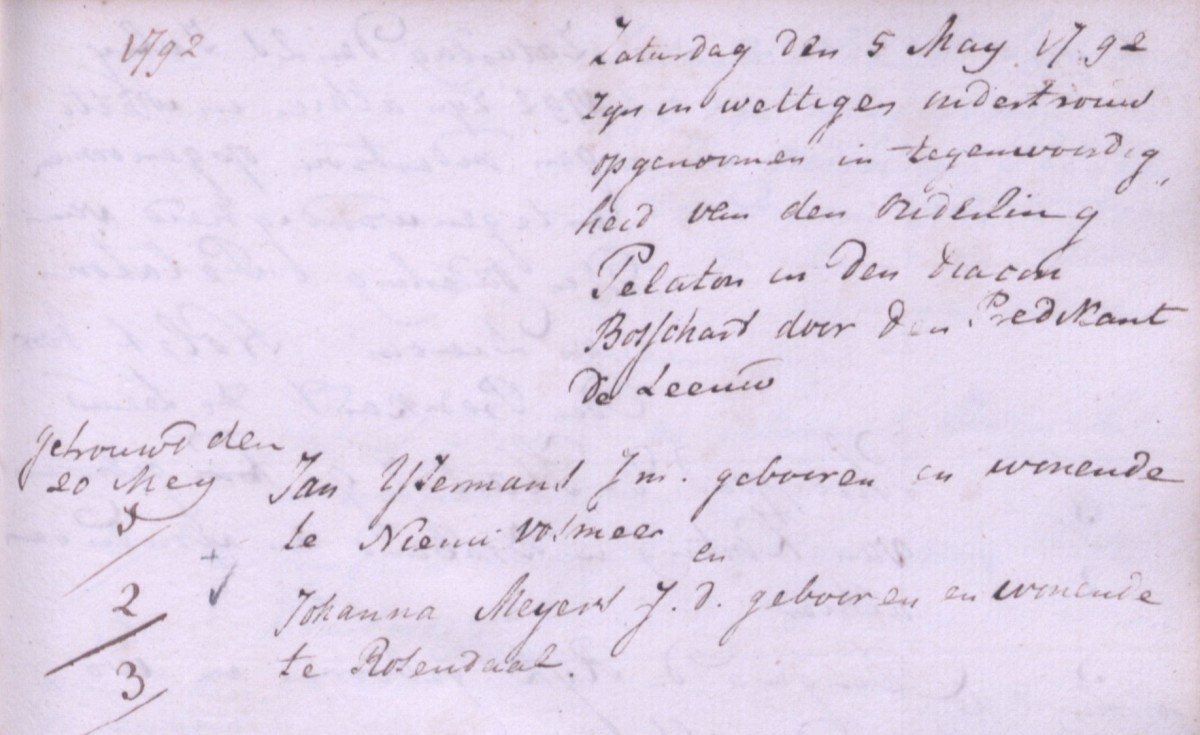 1792
Zaturdag den 5 May 1792
Zyn in wettigen ondertrouw
opgenoomen in tegenwoordig
heid van den Ouderling
Pelaton in den diacon
Bosschart door den Predikant
de Leeuw
getrouwd den
20 Mey
Jan IJsermans J.m. gebooren en wonende
te Nieuw vosmeer
en
2
Johanna Meyers J.d. gebooren en wonende
te Rosendaal.
3